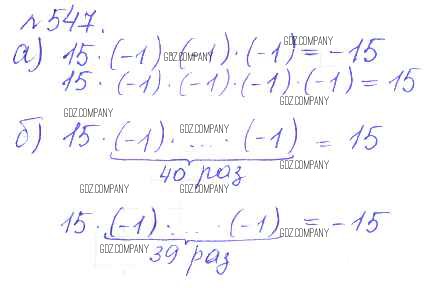 № 547.
а) 15 · (-1) · (-1) · (-1) = -15
15 · (-1) · (-1) · (-1) · (-1) = 15
б) 15 · (-1) · ... · (-1) = 15
40 раз
15 · (-1) · ... · (-1) = -15
39 раз
GDZ.COMPANY
GDZ.COMPANY
GDZ.COMPANY
GDZ.COMPANY
GDZ.COMPANY
GDZ.COMPANY
GDZ.COMPANY
GDZ.COMPANY
GDZ.COMPANY
GDZ.COMPANY